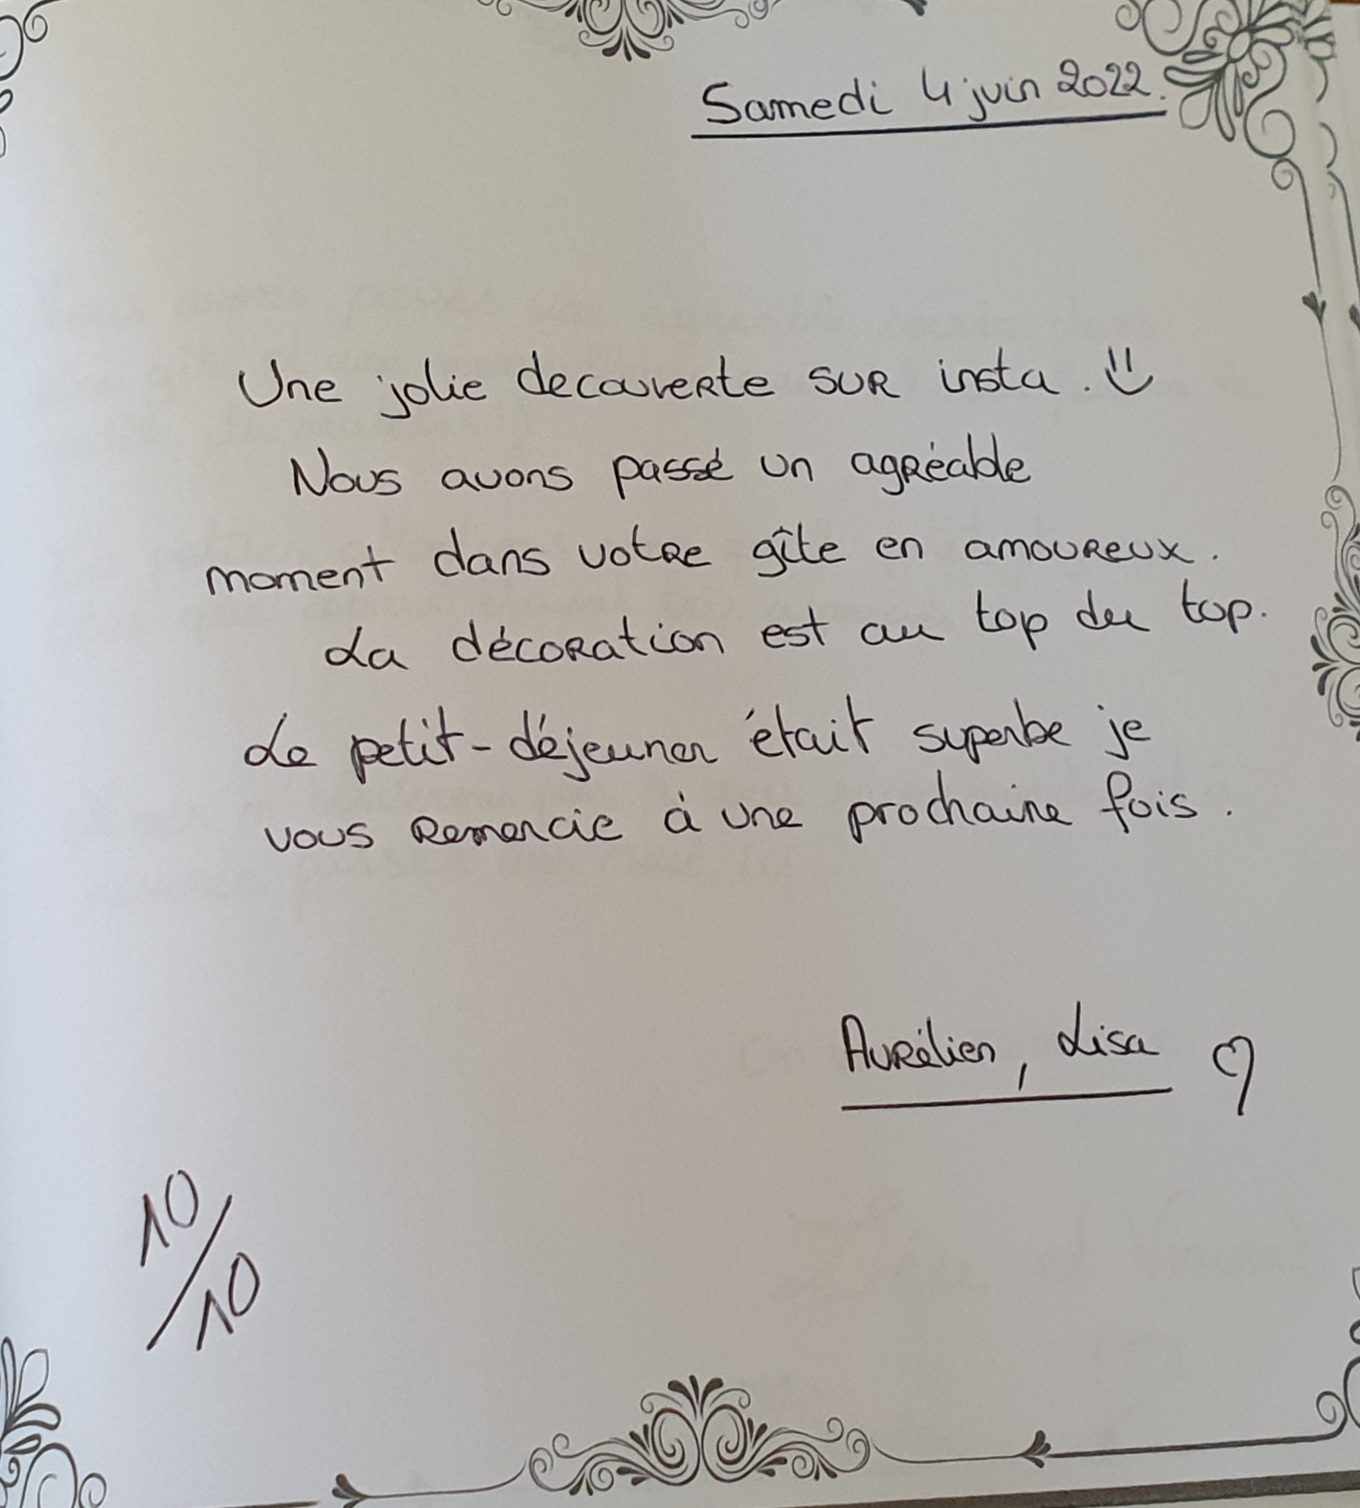 Samedi 4 juin 2022.
Une jolie decouverte sur insta. :)
Nous avons passé un agréable
moment dans votre gîte en amoureux.
La décoration est au top du top.
Le petit-déjeuner était superbe je
vous remercie à une prochaine fois.
Aurélien, Lisa ♡
10/10